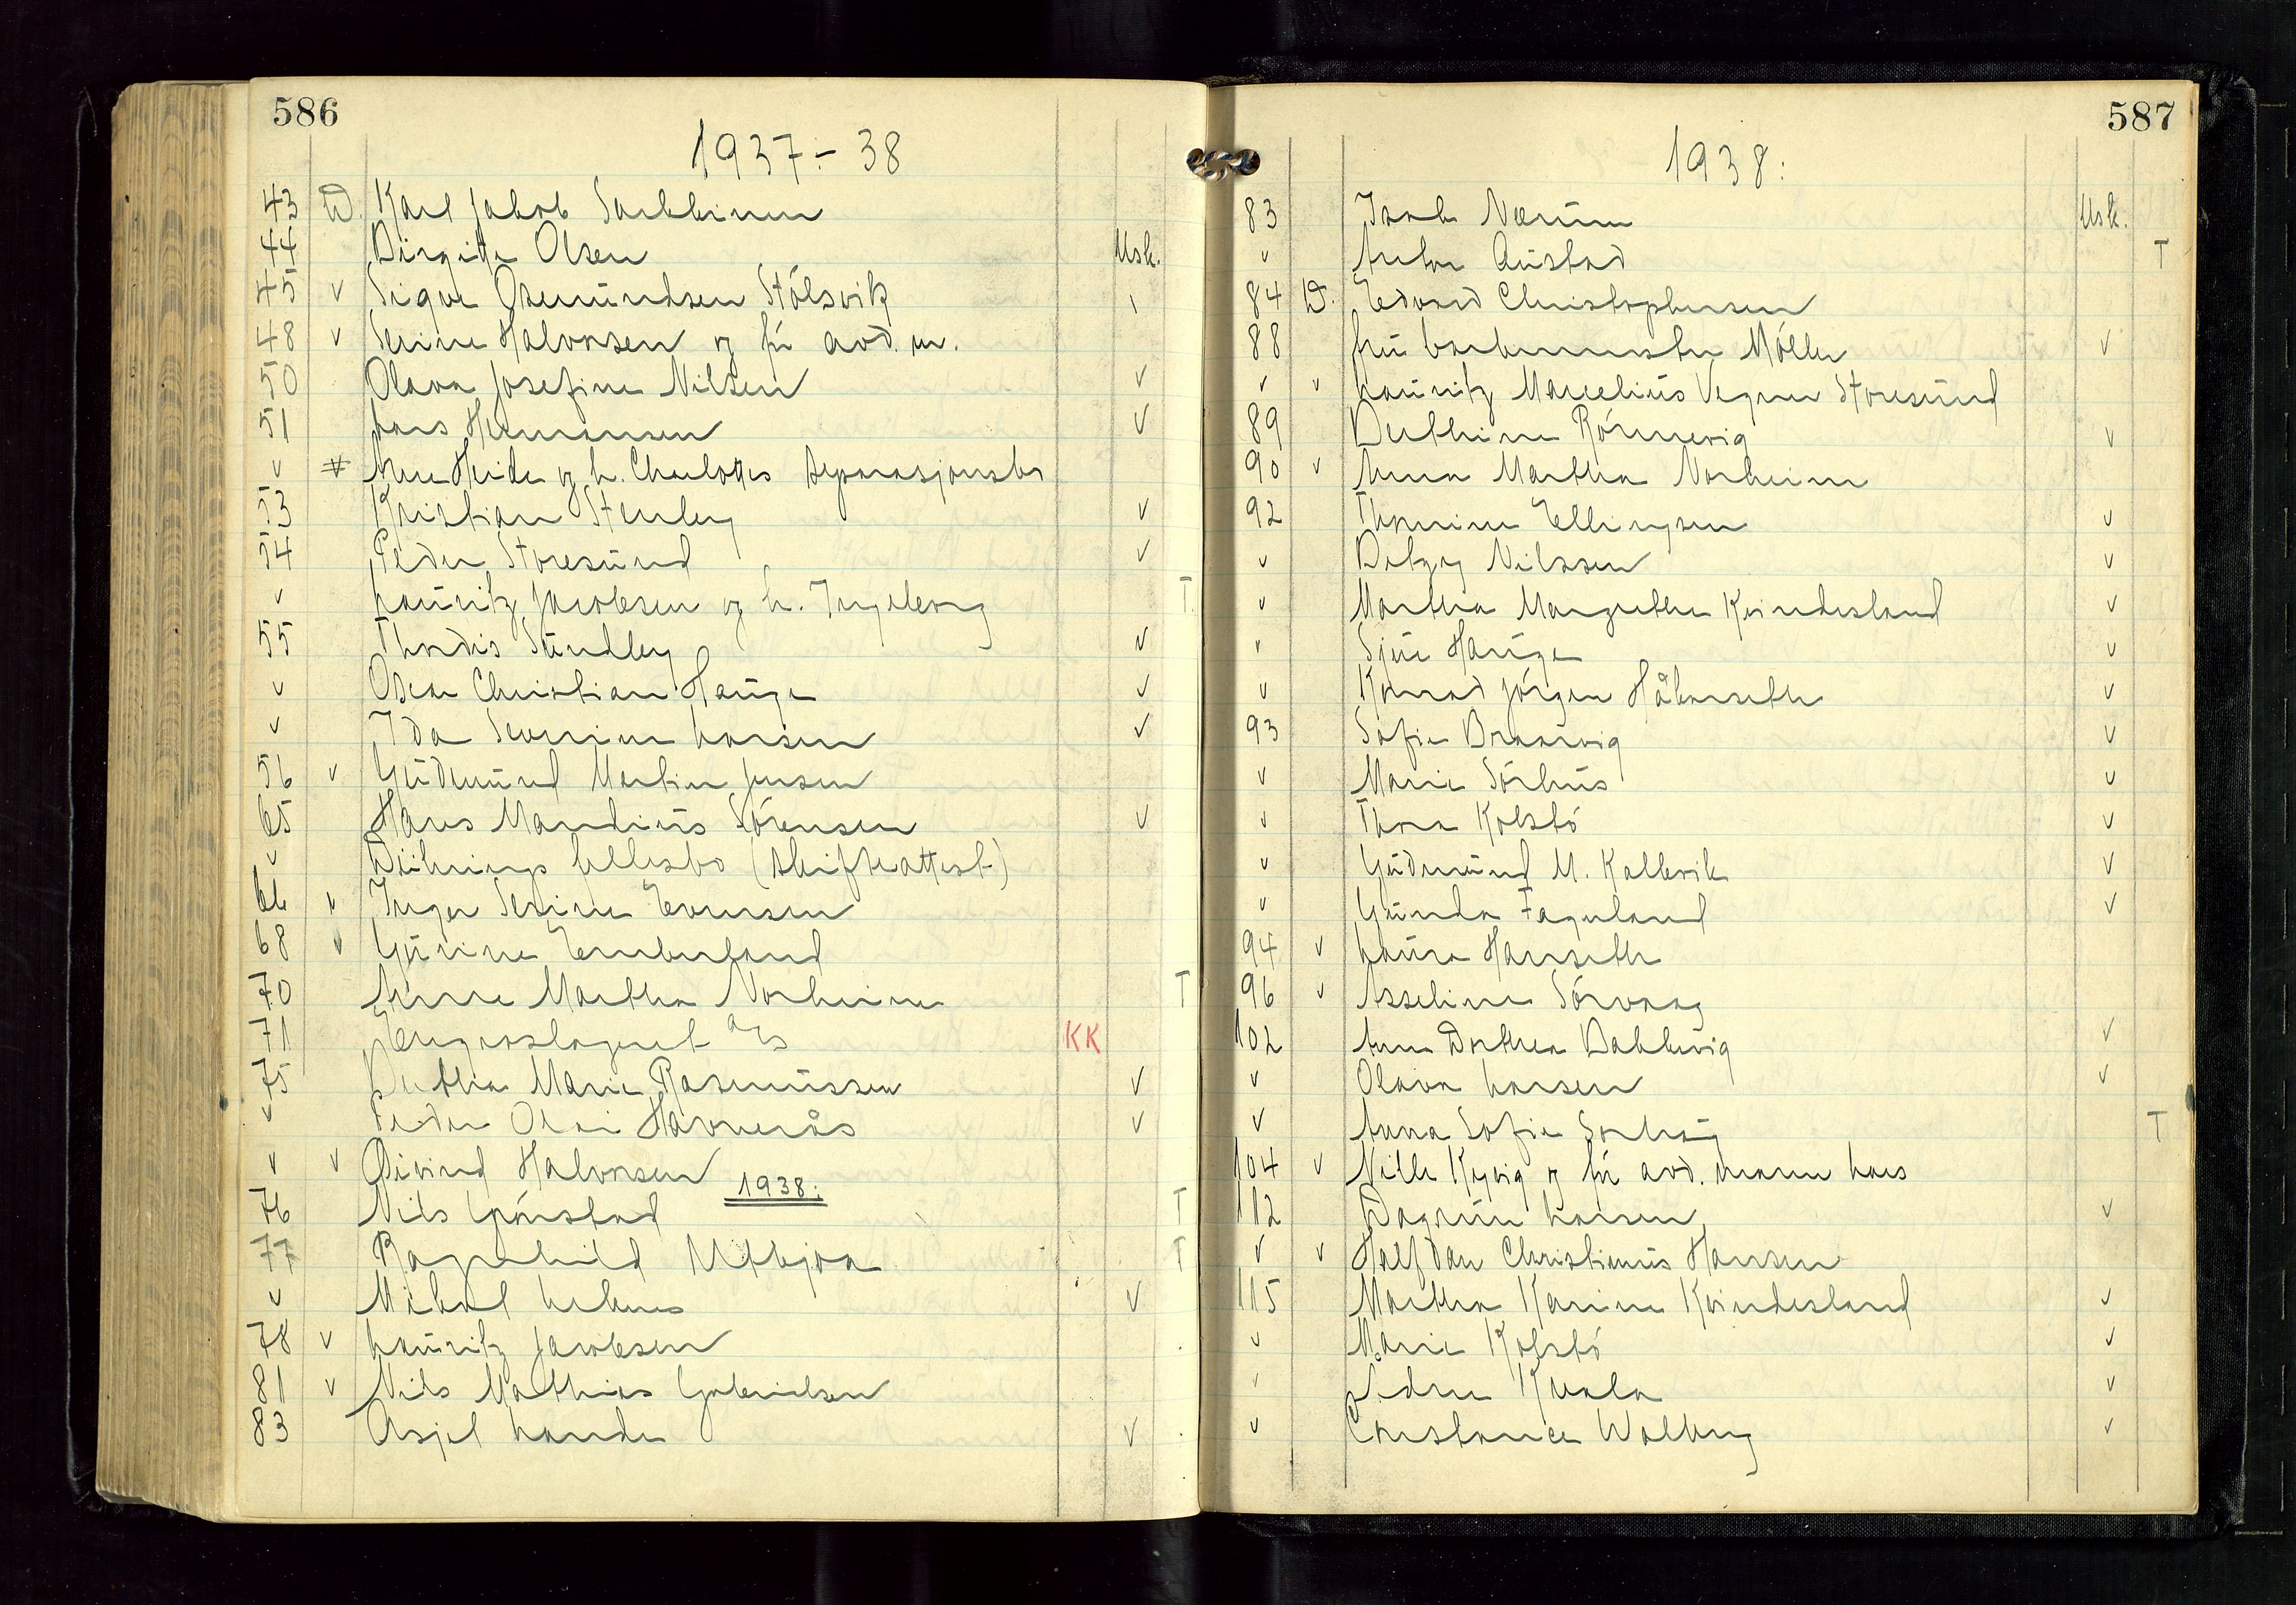 586
1937.- 38
43 D. Karl Jakob
44 Birgitte Olsen Usk.
45 v Sigve Osmundsen Stólsvik
48 v Serine Halvorsen og fii avd. m.
50 Olava Josefine Nilsen v
51 Lars Hermansen v
v # Anne Heide og h. Charlottes separasjonsbo
53 Kristian Stenley v
54 Peder Storesund v
v Lauritz Jacobsen og h. Ingeborg T.
55 Thordis Sundley v
v Oscar Christian Hauge v
v Ida Severine Larsen v
56 v Gudmund Martin Jensen
65 Hans Mandius Sörensen v
v fellesbo (skifteattest)
66 v Inger Serine Evensen
68 v Gurine Emberland
70 Anne Martha Norheim T
71 Engroslageret A/S KK
75 Berthe Marie Rasmussen v
v Peder Havnerås v
v v Øivind Halvorsen
1938:
76 Nils Gjörstad T
77 Ragnhild Utbjoa T
v Mikal v
78 v Lauritz Jacobsen
81 v Nils Mathias Gabrielsen
83 Asjel Lande v
587
1938:
83 Jacob Nærum Usk.
v Anton Austad T
84 D. Edvard Christophersen
88 fru Móller v
v v Lauritz Marcelius Vegner Storesund
89 Berthine Rónnevig v
90 v Anna Martha Norheim
92 Thomine Ellingsen v
v Betzy Nilssen v
v Martha Margrethe Kvindesland v
v Sjur Hauge v
v Konrad Jörgen Håkonseth v
93 Sofie Braarvig v
v Marie Sörhus v
v Thora Kolstó v
v Gudmund M. Kallevik v
v Gunda Fagerland v
94 v Laura Hanseth
96 v Asseline Sórvaag
102 Ane Dorthea Bakkevig v
v Olava Larsen v
v Anna Sofie Sorhaug T
104 v Nille Kyvig og fii avd. mann Lars
112 Dagrun Larsen v
v v Halfdan Christinius Hansen
115 Martha Karine Kvindesland v
v Marie Kolstó v
v Pedru Kvala v
v Constance Walberg v